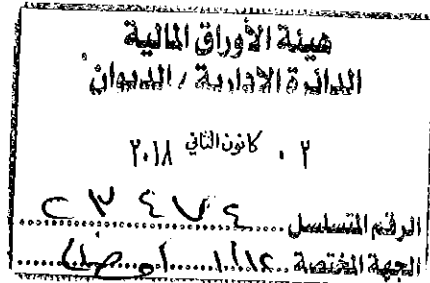 هيئة الأوراق المالية
الدائرة الادارية / الديوان
٠ ٢ كانون الثاني ٢٠١٨
الرقم المتسلسل ٢٣٤٧٤
الجهة المختصة